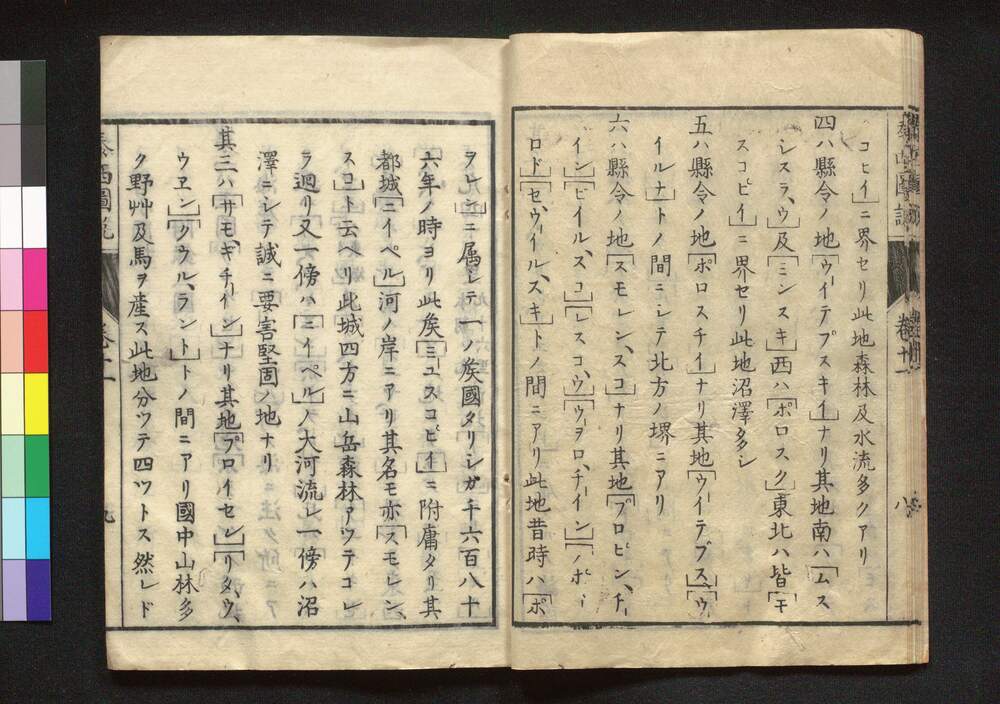 コヒイ」ニ界セリ此地森林及水流多クアリ
四ハ縣令ノ地「ウイテプスキイ」ナリ其地南ハ「ムス
シスラ、ウ」及「ミンスキ」西ハ「ポロスク」東北ハ皆「モ
スコビイ」ニ界セリ此地沼澤多シ
五ハ縣令ノ地「ポロスチイ」ナリ其地「ウイテブス」「ウ
イルナ」トノ間ニシテ北方ノ堺ニアリ
六ハ縣令ノ地「スモレン、スコ」ナリ其地「プロビン、チ
イン」「ビイル、スコ」「レスコ、ウ」「ウヲロチ、イン」「ノボ
ロド」「セ、ウイル、スキ」トノ間ニアリ此地昔時ハ「ポ
ヲレン」ニ属シテ一ノ矦國タリシガ千六百八十
六年ノ時ヨリ此矦「ミュスコビイ」ニ附庸タリ其
都城「ニイペル」河ノ岸ニアリ其名モ亦「スモレン、
スコ」ト云ヘリ此城四方ニ山岳森林アツテコレ
ラ廻リ又一傍ハ「ニイペル」ノ大河流レ一傍ハ沼
澤ニシテ誠ニ要害堅固ノ地ナリ
其三ハ「サモ、ギチイン」ナリ其地「プロイセレ」「リタ、ウ、
ウヱン」「クウル、ラント」トノ間ニアリ國中山林多
ク野艸及馬ヲ産ス此地分ツテ四ツトス然レド
泰西圖説
卷十一
八
九